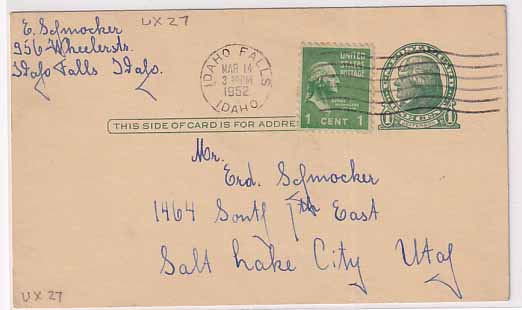 E. Schmocker
UX 27
956 Wheelersts.
Idaho Falls Idaho.
IDAHO FALLS
MAR 14
PM
1952
IDAHO
UNITED
STATES
POSTAGE
1 CENT 1
THIS SIDE OF CARD IS FOR ADDRE
1 1
Mr.
Erd. Schmocker
1464 South 7th East
Salt Lake City Utah
UX 27